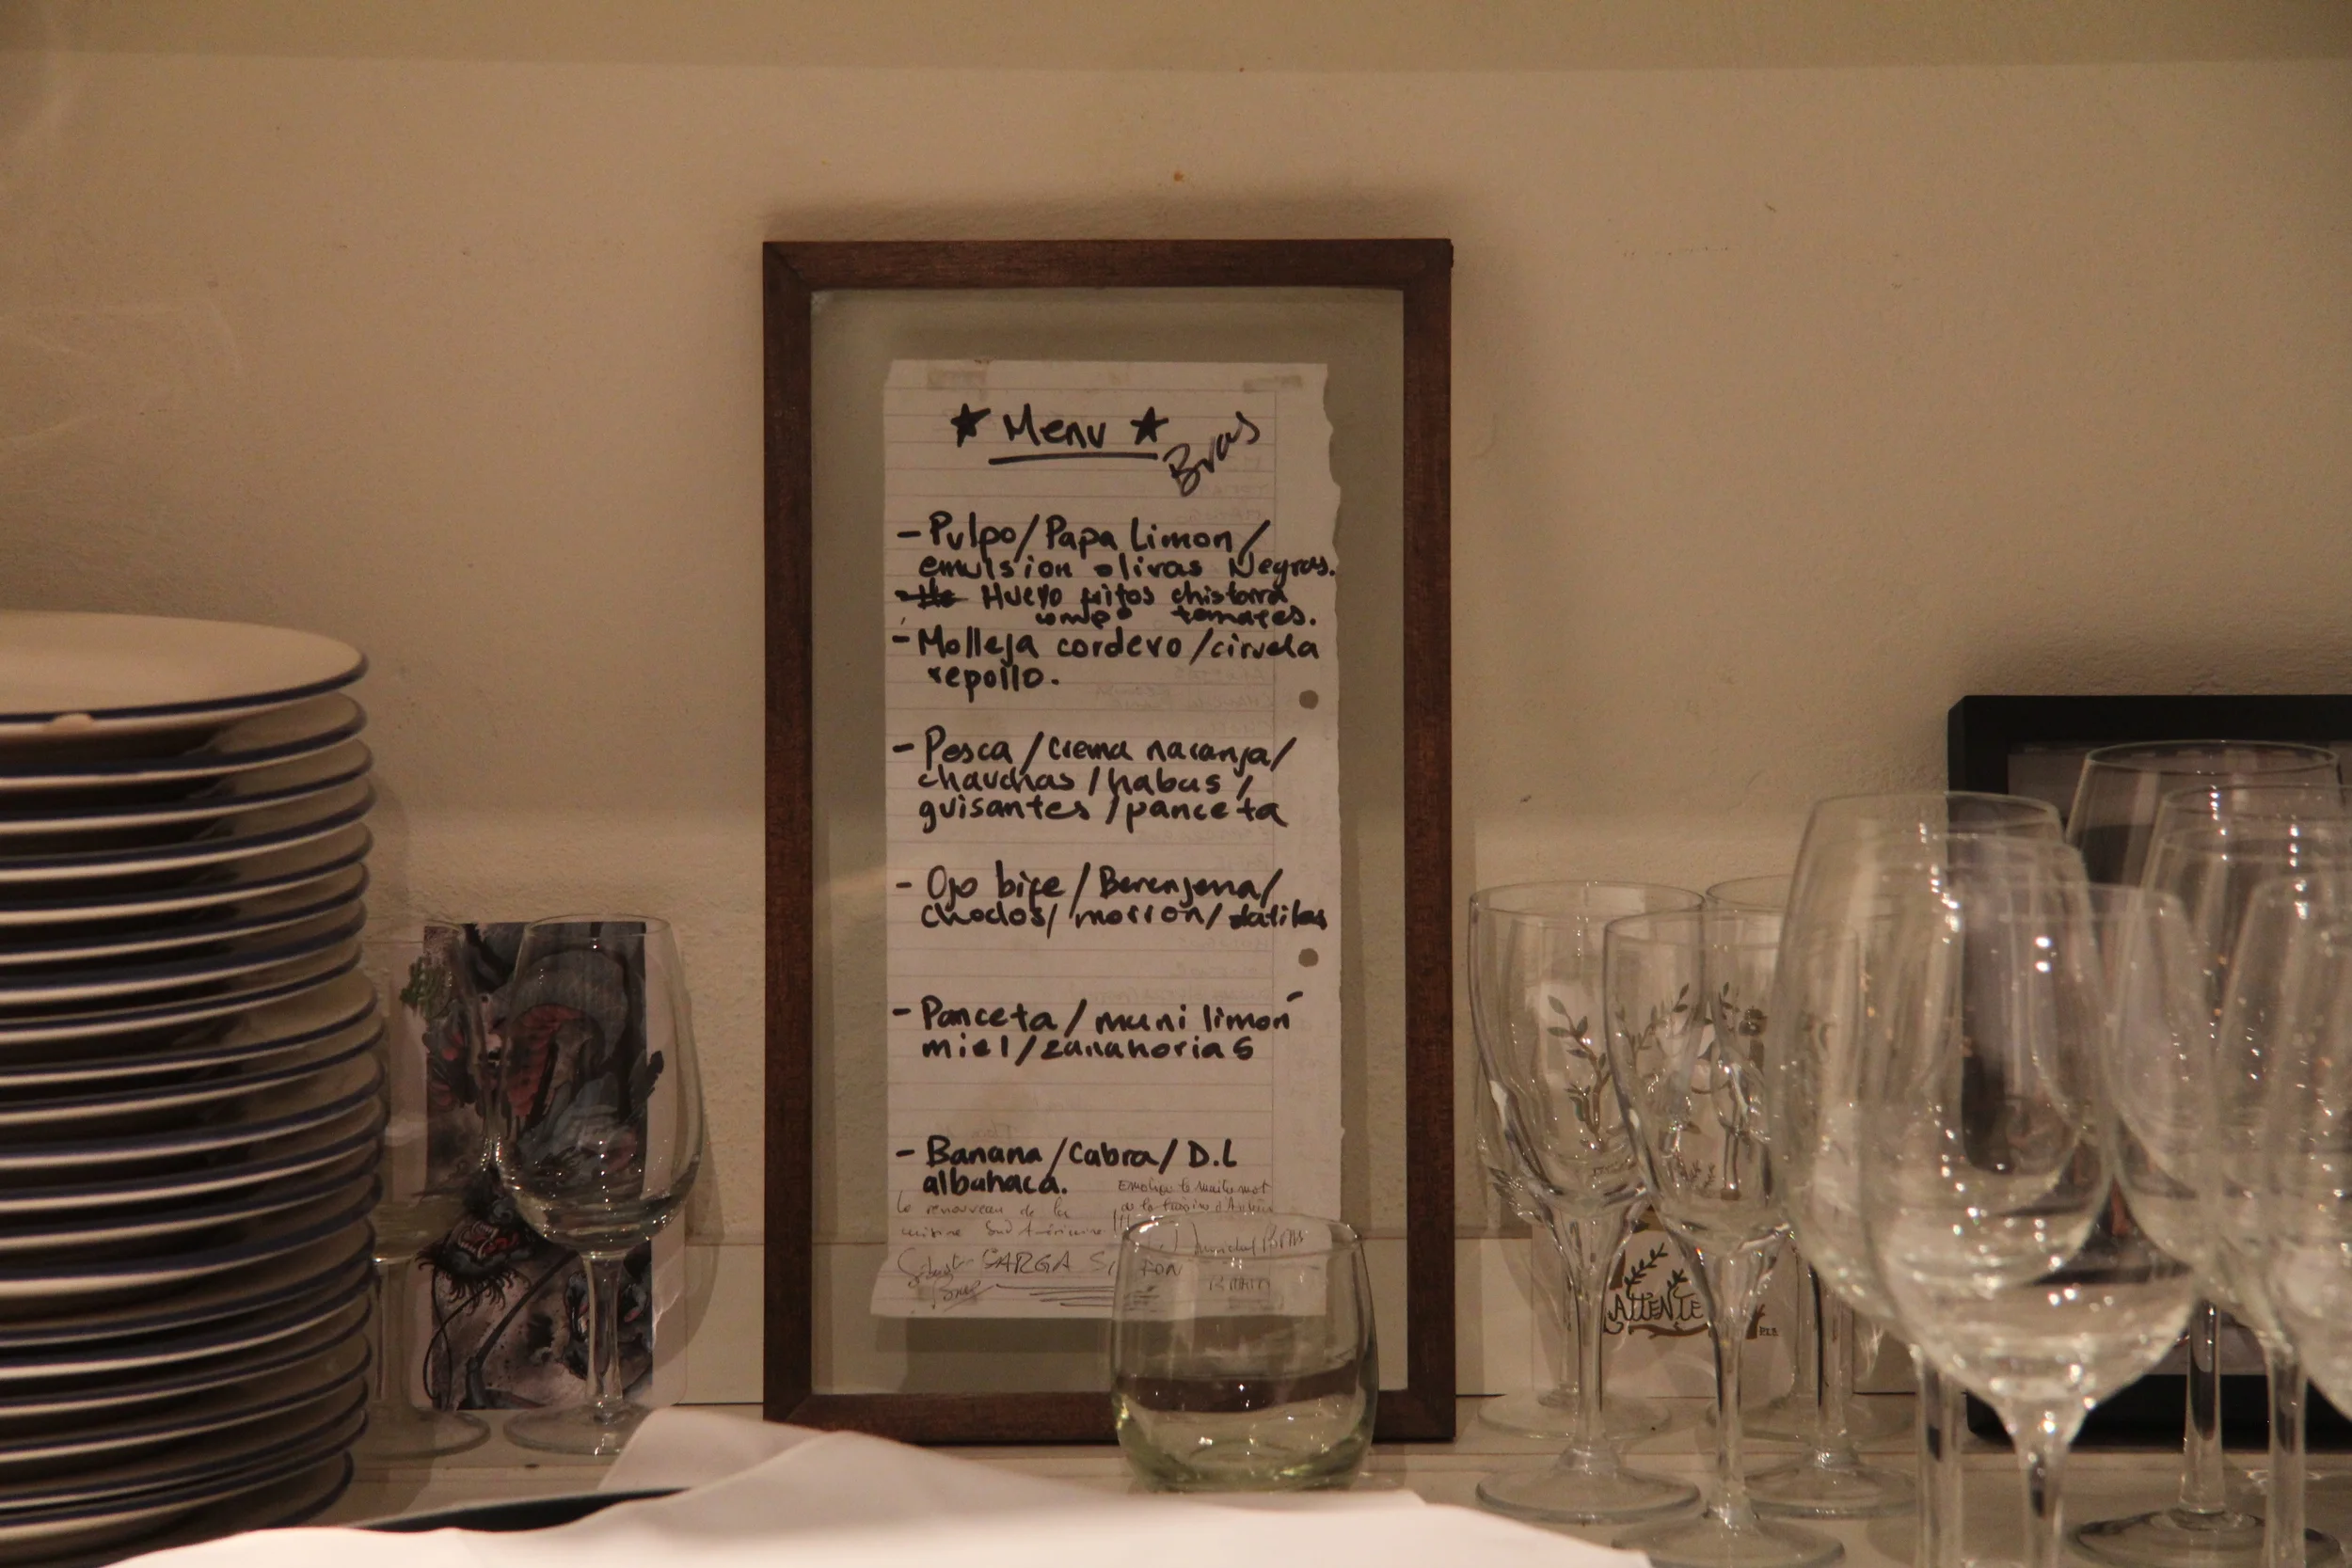 ★ Menu ★
Bras
- Pulpo/Papa Limon/
emulsion olivas Negras.
Huevo fritos chistorra
comp° tomates.
- Molleja cordero/ciruela
repollo.
- Pesca/crema naranja/
chauchas/habas/
guisantes/panceta
- Ojo bife/Berenjena/
choclos/morron/datiles
- Panceta/mani limon
miel/zanahorias
- Banana/Cabra/D.L
albahaca.
le renouveau de la
cuisine Sud Américaine
Emotion le maitre mot
de la
GARGA
ATTENTE